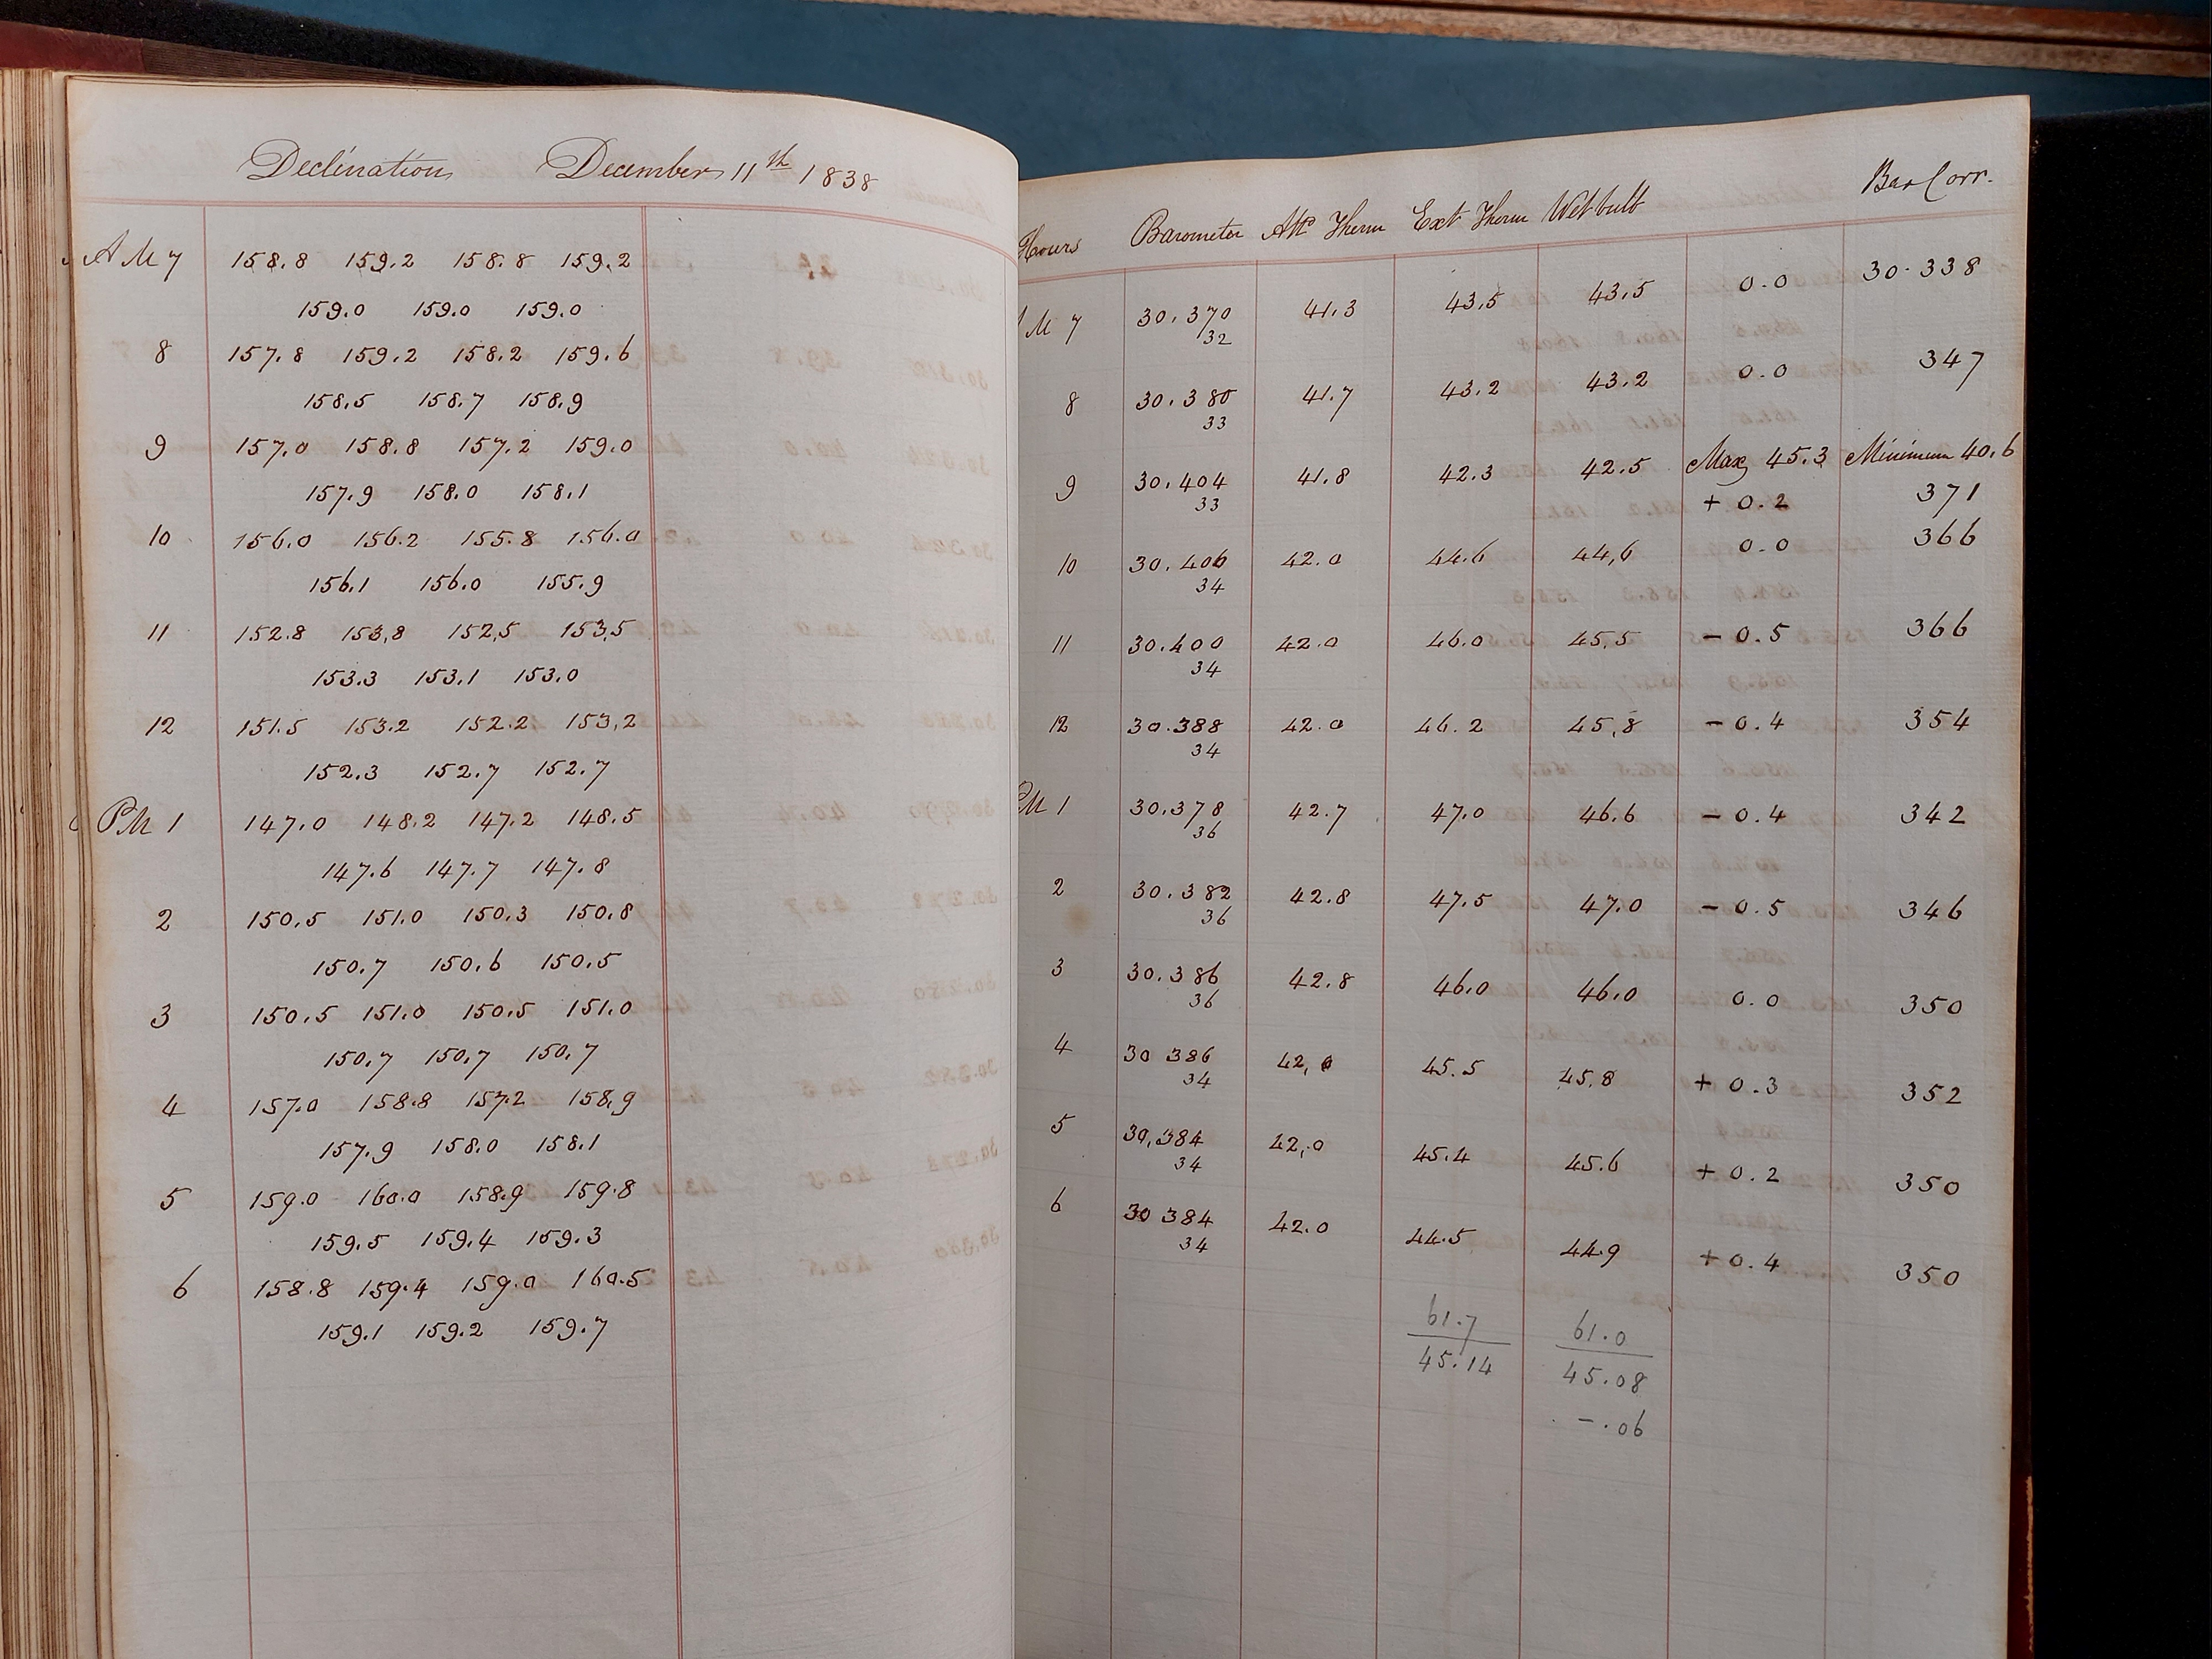 Declination December 11th 1838
AM 7 158.8 159.2 158.8 159.2
159.0 159.0 159.0
8 157.8 159.2 158.2 159.6
158.5 158.7 158.9
9 157.0 158.8 157.2 159.0
157.9 158.0 158.1
10 156.0 156.2 155.8 156.0
156.1 156.0 155.9
11 152.8 153.8 152.5 153.5
153.3 153.1 153.0
12 151.5 153.2 152.2 153.2
152.3 152.7 152.7
PM 1 147.0 148.2 147.2 148.5
147.6 147.7 147.8
2 150.5 151.0 150.3 150.8
150.7 150.6 150.5
3 150.5 151.0 150.5 151.0
150.7 150.7 150.7
4 157.0 158.8 157.2 158.9
157.9 158.0 158.1
5 159.0 160.0 158.9 159.8
159.5 159.4 159.3
6 158.8 159.4 159.0 160.5
159.1 159.2 159.7
Hours Barometer Att Therm Ext Therm Wet bulb Bar Corr.
M 7 30.370 41.3 43.5 43.5 0.0 30.338
32
8 30.380 41.7 43.2 43.2 0.0 347
33
Max 45.3 Minimum 40.6
9 30.404 41.8 42.3 42.5 + 0.2 371
33
10 30.406 42.0 44.6 44.6 0.0 366
34
11 30.400 42.0 46.0 45.5 - 0.5 366
34
12 30.388 42.0 46.2 45.8 - 0.4 354
34
PM 1 30.378 42.7 47.0 46.6 - 0.4 342
36
2 30.382 42.8 47.5 47.0 - 0.5 346
36
3 30.386 42.8 46.0 46.0 0.0 350
36
4 30 386 42.0 45.5 45.8 + 0.3 352
34
5 30.384 42.0 45.4 45.6 + 0.2 350
34
6 30 384 42.0 44.5 44.9 + 0.4 350
34
61.7 61.0
45.14 45.08
- .06